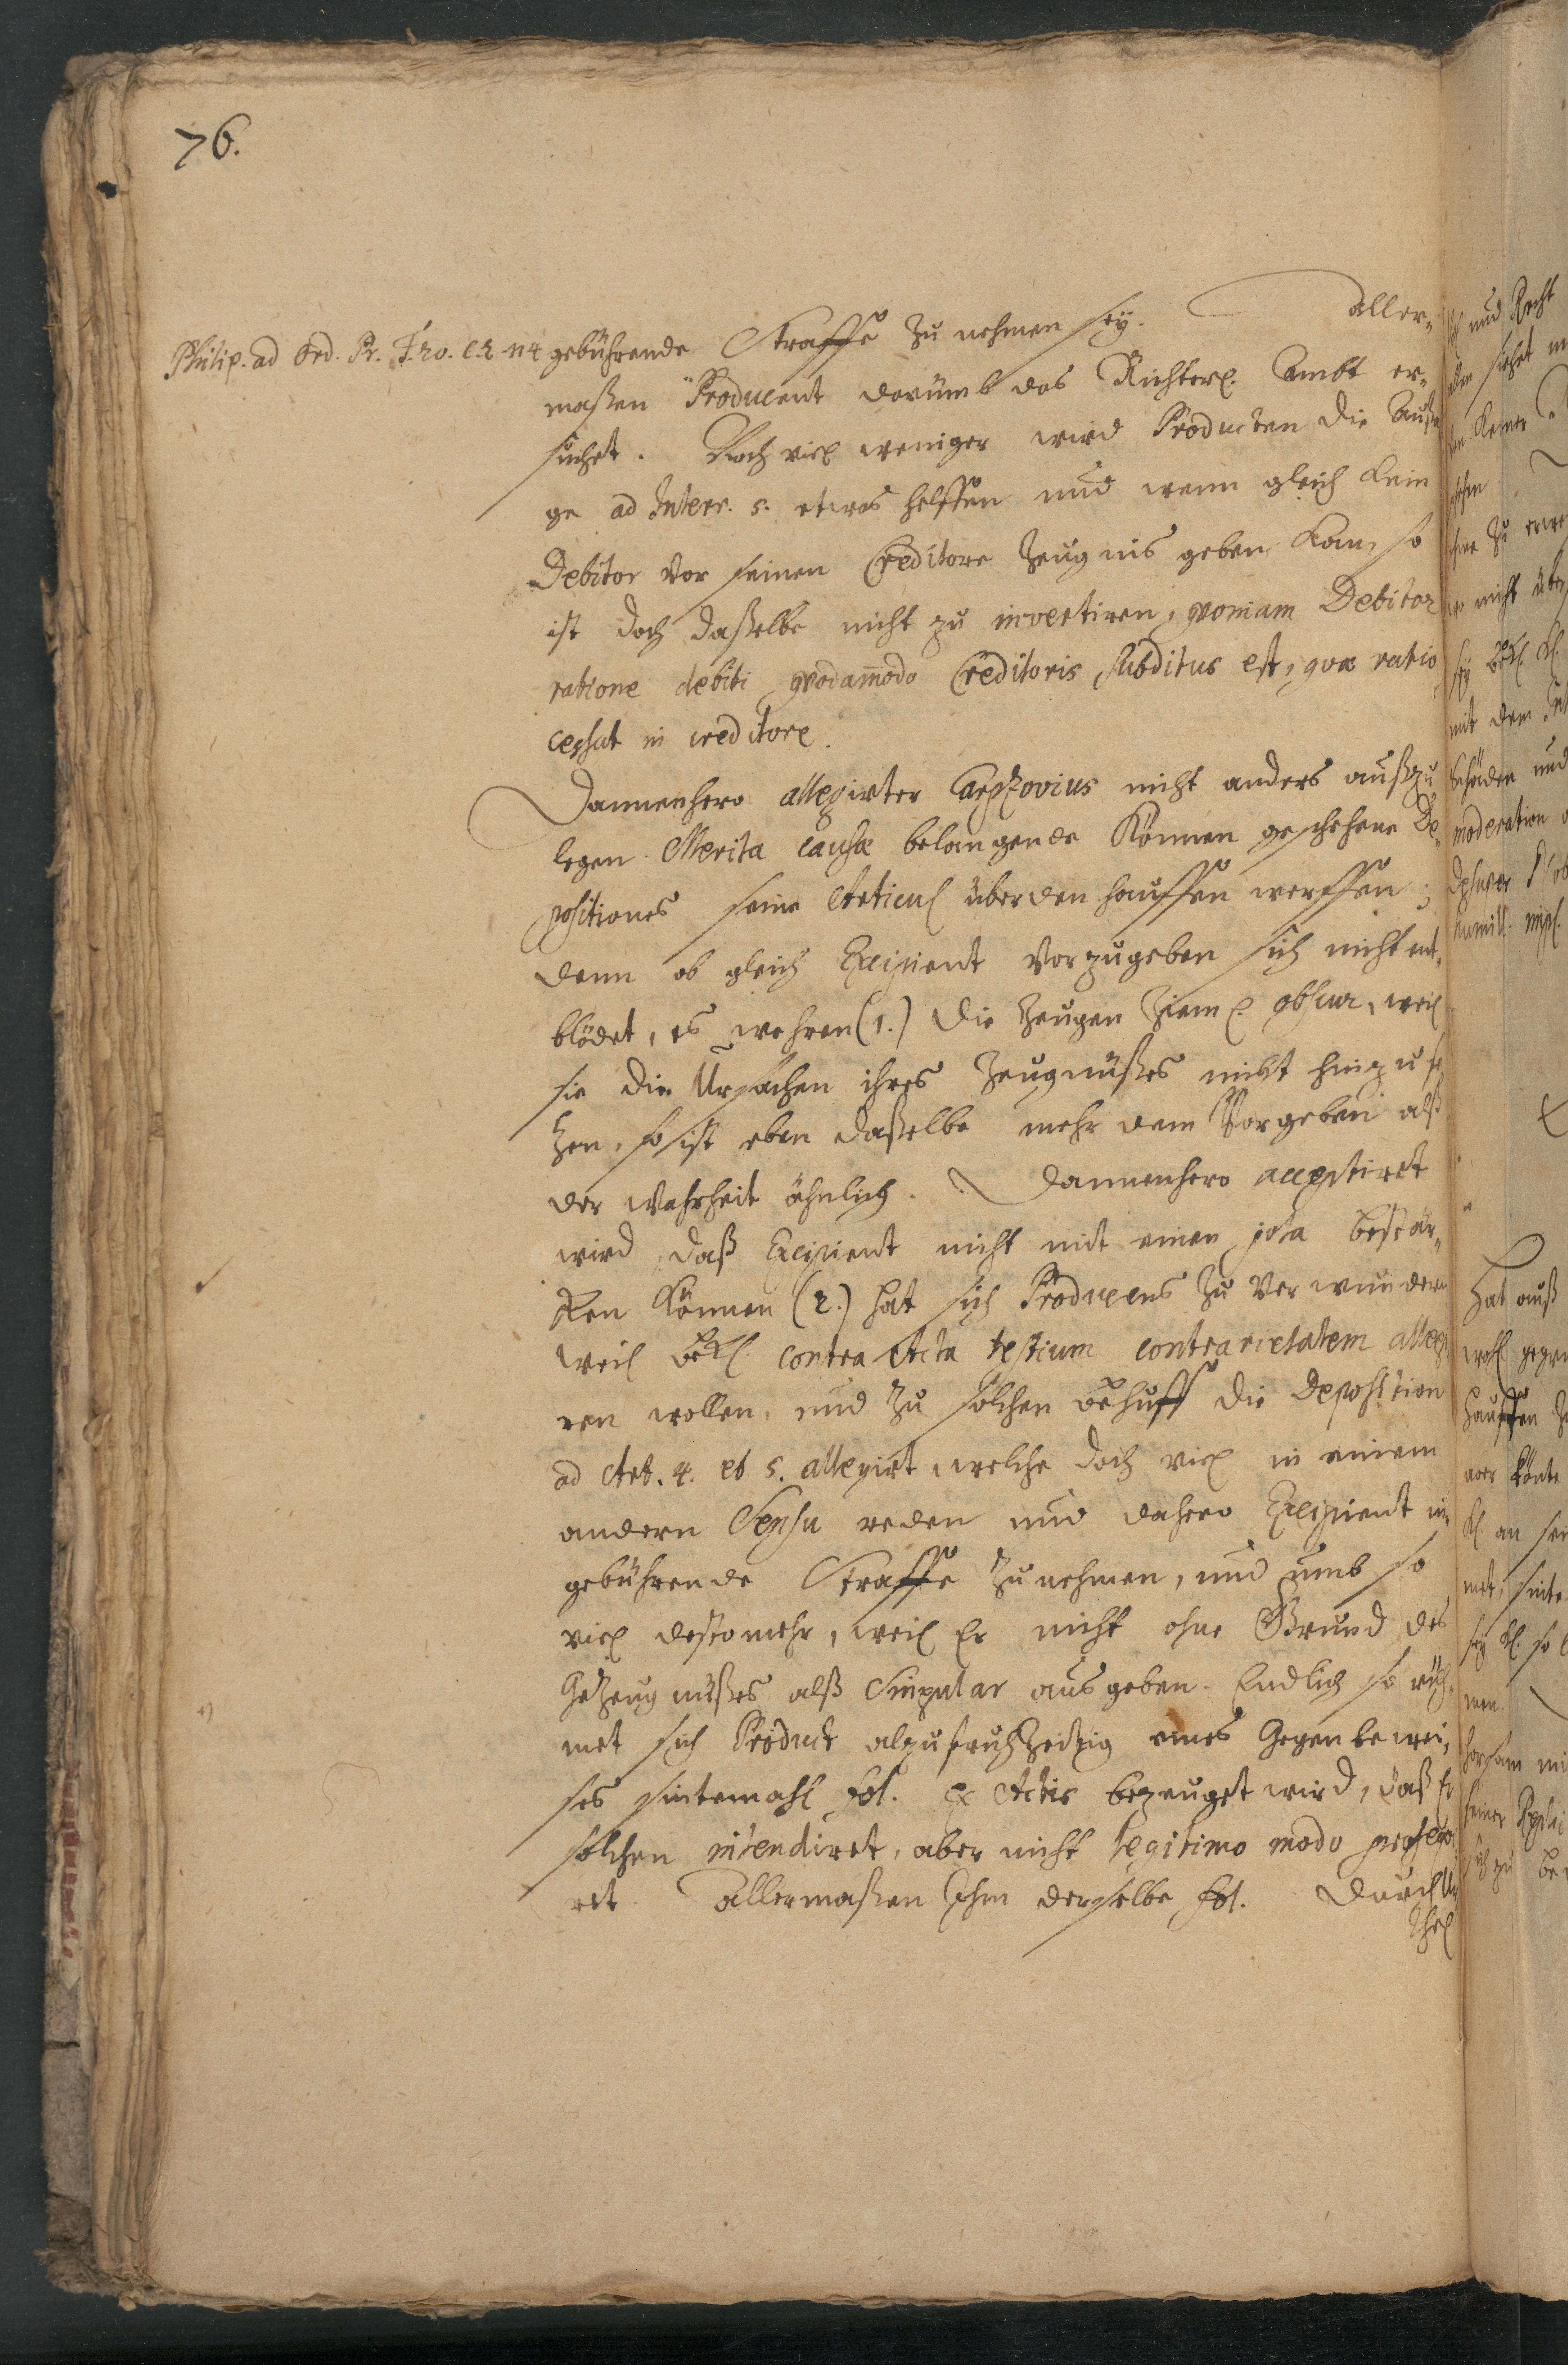 76.
Philip. ad Ord. Pr. T. 20. C. 2. n 4
gebührende Straffe zu nehmen sey. aller-
maßen Producent darümb das Richterl. Ambt er-
suchet. Noch viel weniger wird Producten die Außa
ge ad Interr. 5. etwas helffen und wenn gleich kein
Debitor vor seinen Creditore Zeugnis geben kan, so
ist doch daßelbe nicht zu invertiren, qvoniam Debitor
ratione debiti qvodam̄odo Creditoris Subditus est, qvæ ratio
cessat in creditore.
Dannenhero allegirter Carpzovius nicht anders außzu
legen. Merita causæ belangende können geschehene De-
positiones seine Articul überden hauffen werffen;
denn ob gleich Excipient vorzugeben sich nicht ent-
blödet, es wehren (1.) die Zeugen Zieml. obscur, weil
sie die Ursachen ihres Zeugnüßes nicht hinzu se
tzen, so ist eben daßelbe mehr dem Vorgeben alß
der Wahrheit ähnlich. Dannenhero acceptiret
wird, daß Excipient nicht mit einen jota bestär-
cken können (2.) hat sich Producens zu verwundern
weil Bekl. contra Acta testium contrarietatem allegi
ren wollen, und zu solchen Behuff die Deposition
ad Art. 4. et 5. allegirt, welche doch viel in einem
andern Sensu reden und dahero Excipient in
gebührende Straffe zu nehmen, und umb so
viel destomehr, weil Er nicht ohne Grund des
GeZeugnüßes alß Singular ausgeben. Endlich so rüh-
met sich Product alzufruhzeitig eines Gegenbewei-
ses sintemahl fol. ex Actis bezeuget wird, daß Er
solchen intendiret, aber nicht legitimo modo prosequi
ret. Allermaßen Ihm derselbe fol. durch Ur
thel